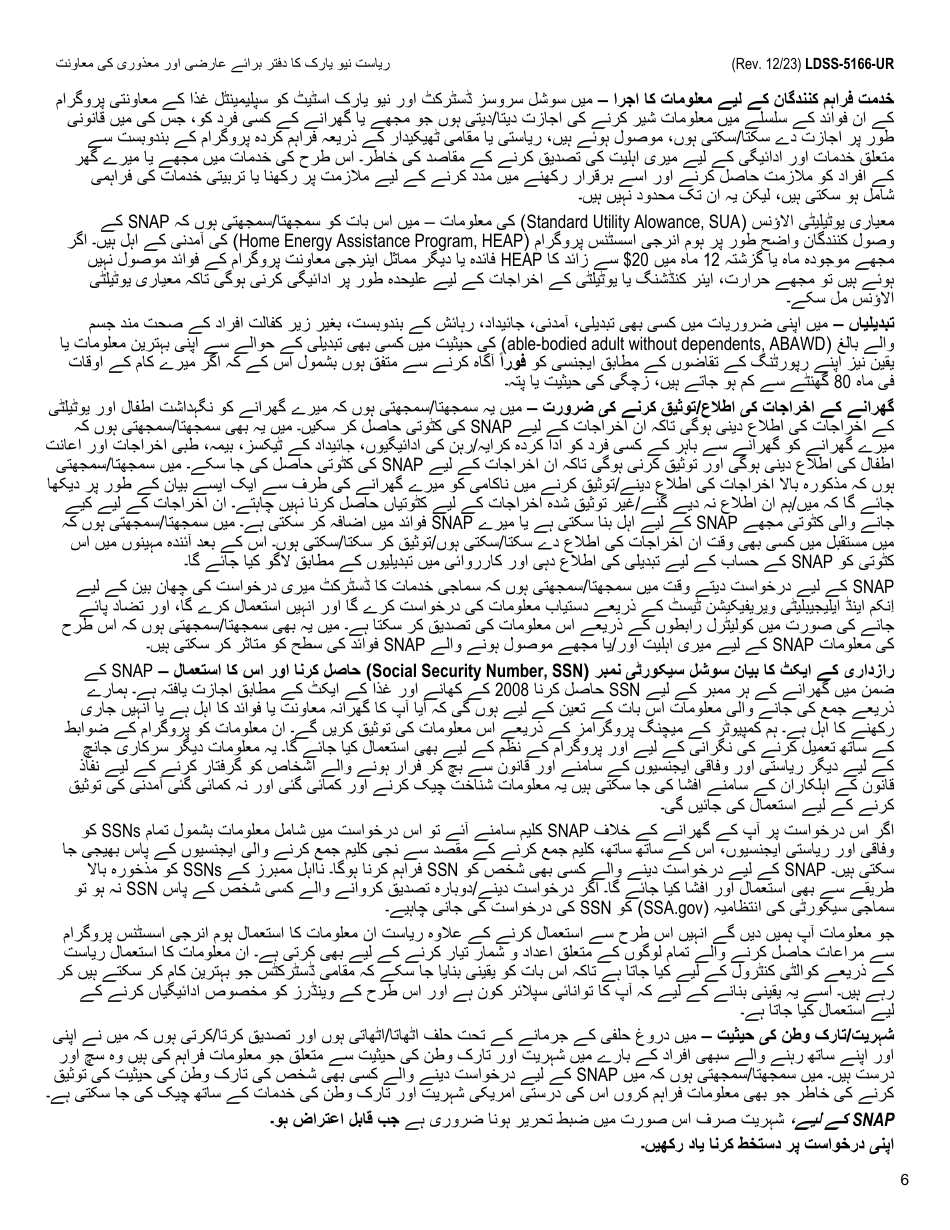 (Rev. 12/23) LDSS-5166-UR
ریاست نیو یارک کا دفتر برائے عارضی اور معذوری کی معاونت
خدمت فراہم کنندگان کے لیے معلومات کا اجرا – میں سوشل سروسز ڈسٹرکٹ اور نیو یارک اسٹیٹ کو سپلیمینٹل غذا کے معاونتی پروگرام
کے ان فوائد کے سلسلے میں معلومات شیئر کرنے کی اجازت دیتا/دیتی ہوں جو مجھے یا گھرانے کے کسی فرد کو، جس کی میں قانونی
طور پر اجازت دے سکتا/سکتی ہوں، موصول ہوئے ہیں، ریاستی یا مقامی ٹھیکیدار کے ذریعہ فراہم کردہ پروگرام کے بندوبست سے
متعلق خدمات اور ادائیگی کے لیے میری اہلیت کی تصدیق کرنے کے مقاصد کی خاطر۔ اس طرح کی خدمات میں مجھے یا میرے گھر
کے افراد کو ملازمت حاصل کرنے اور اسے برقرار رکھنے میں مدد کرنے کے لیے ملازمت پر رکھنا یا تربیتی خدمات کی فراہمی
شامل ہو سکتی ہیں، لیکن یہ ان تک محدود نہیں ہیں۔
معیاری یوٹیلیٹی الاؤنس (Standard Utility Alowance, SUA) کی معلومات – میں اس بات کو سمجھتا/سمجھتی ہوں کہ SNAP کے
وصول کنندگان واضح طور پر ہوم انرجی اسسٹنس پروگرام (Home Energy Assistance Program, HEAP) کی آمدنی کے اہل ہیں۔ اگر
مجھے موجودہ ماہ یا گزشتہ 12 ماہ میں $20 سے زائد کا HEAP فائدہ یا دیگر مماثل اینرجی معاونت پروگرام کے فوائد موصول نہیں
ہوئے ہیں تو مجھے حرارت، ایئر کنڈشننگ یا یوٹیلٹی کے اخراجات کے لیے علیحدہ طور پر ادائیگی کرنی ہوگی تاکہ معیاری یوٹیلٹی
الاؤنس مل سکے۔
تبدیلیاں – میں اپنی ضروریات میں کسی بھی تبدیلی، آمدنی، جائیداد، رہائش کے بندوبست، بغیر زیر کفالت افراد کے صحت مند جسم
والے بالغ (able-bodied adult without dependents, ABAWD) کی حیثیت میں کسی بھی تبدیلی کے حوالے سے اپنی بہترین معلومات یا
یقین نیز اپنے رپورٹنگ کے تقاضوں کے مطابق ایجنسی کو فوراً آگاہ کرنے سے متفق ہوں بشمول اس کے کہ اگر میرے کام کے اوقات
فی ماہ 80 گھنٹے سے کم ہو جاتے ہیں، زچگی کی حیثیت یا پتہ۔
گھرانے کے اخراجات کی اطلاع/توثیق کرنے کی ضرورت – میں یہ سمجھتا/سمجھتی ہوں کہ میرے گھرانے کو نگہداشت اطفال اور یوٹیلٹی
کے اخراجات کی اطلاع دینی ہوگی تاکہ ان اخراجات کے لیے SNAP کی کٹوتی حاصل کر سکیں۔ میں یہ بھی سمجھتا/سمجھتی ہوں کہ
میرے گھرانے کو گھرانے سے باہر کے کسی فرد کو ادا کردہ کرایہ/رہن کی ادائیگیوں، جائیداد کے ٹیکسز، بیمہ، طبی اخراجات اور اعانت
اطفال کی اطلاع دینی ہوگی اور توثیق کرنی ہوگی تاکہ ان اخراجات کے لیے SNAP کی کٹوتی حاصل کی جا سکے۔ میں سمجھتا/سمجھتی
ہوں کہ مذکورہ بالا اخراجات کی اطلاع دینے/توثیق کرنے میں ناکامی کو میرے گھرانے کی طرف سے ایک ایسے بیان کے طور پر دیکھا
جائے گا کہ میں/ہم ان اطلاع نہ دیے گئے/غیر توثیق شدہ اخراجات کے لیے کٹوتیاں حاصل کرنا نہیں چاہتے۔ ان اخراجات کے لیے کیے
جانے والی کٹوتی مجھے SNAP کے لیے اہل بنا سکتی ہے یا میرے SNAP فوائد میں اضافہ کر سکتی ہے۔ میں سمجھتا/سمجھتی ہوں کہ
میں مستقبل میں کسی بھی وقت ان اخراجات کی اطلاع دے سکتا/سکتی ہوں/توثیق کر سکتا/سکتی ہوں۔ اس کے بعد آئندہ مہینوں میں اس
کٹوتی کو SNAP کے حساب کے لیے تبدیلی کی اطلاع دہی اور کارروائی میں تبدیلیوں کے مطابق لاگو کیا جائے گا۔
SNAP کے لیے درخواست دیتے وقت میں سمجھتا/سمجھتی ہوں کہ سماجی خدمات کا ڈسٹرکٹ میری درخواست کی چھان بین کے لیے
اِنکم اینڈ ایلیجیبلیٹی ویریفیکیشن ٹیسٹ کے ذریعے دستیاب معلومات کی درخواست کرے گا اور انہیں استعمال کرے گا، اور تضاد پائے
جانے کی صورت میں کولیٹرل رابطوں کے ذریعے اس معلومات کی تصدیق کر سکتا ہے۔ میں یہ بھی سمجھتا/سمجھتی ہوں کہ اس طرح
کی معلومات SNAP کے لیے میری اہلیت اور/یا مجھے موصول ہونے والے SNAP فوائد کی سطح کو متاثر کر سکتی ہیں۔
رازداری کے ایکٹ کا بیان سوشل سیکورٹی نمبر (Social Security Number, SSN) حاصل کرنا اور اس کا استعمال – SNAP کے
ضمن میں گھرانے کے ہر ممبر کے لیے SSN حاصل کرنا 2008 کے کھانے اور غذا کے ایکٹ کے مطابق اجازت یافتہ ہے۔ ہمارے
ذریعے جمع کی جانے والی معلومات اس بات کے تعین کے لیے ہوں گی کہ آیا آپ کا گھرانہ معاونت یا فوائد کا اہل ہے یا انہیں جاری
رکھنے کا اہل ہے۔ ہم کمپیوٹر کے میچنگ پروگرامز کے ذریعے اس معلومات کی توثیق کریں گے۔ ان معلومات کو پروگرام کے ضوابط
کے ساتھ تعمیل کرنے کی نگرانی کے لیے اور پروگرام کے نظم کے لیے بھی استعمال کیا جائے گا۔ یہ معلومات دیگر سرکاری جانچ
کے لیے دیگر ریاستی اور وفاقی ایجنسیوں کے سامنے اور قانون سے بچ کر فرار ہونے والے اشخاص کو گرفتار کرنے کے لیے نفاذ
قانون کے اہلکاران کے سامنے افشا کی جا سکتی ہیں یہ معلومات شناخت چیک کرنے اور کمائی گئی اور نہ کمائی گئی آمدنی کی توثیق
کرنے کے لیے استعمال کی جائیں گی۔
اگر اس درخواست پر آپ کے گھرانے کے خلاف SNAP کلیم سامنے آئے تو اس درخواست میں شامل معلومات بشمول تمام SSNs کو
وفاقی اور ریاستی ایجنسیوں، اس کے ساتھ ساتھ، کلیم جمع کرنے کے مقصد سے نجی کلیم جمع کرنے والی ایجنسیوں کے پاس بھیجی جا
سکتی ہیں۔ SNAP کے لیے درخواست دینے والے کسی بھی شخص کو SSN فراہم کرنا ہوگا۔ نااہل ممبرز کے SSNs کو مذخورہ بالا
طریقے سے بھی استعمال اور افشا کیا جائے گا۔ اگر درخواست دینے/دوبارہ تصدیق کروانے والے کسی شخص کے پاس SSN نہ ہو تو
سماجی سیکورٹی کی انتظامیہ (SSA.gov) کو SSN کی درخواست کی جانی چاہیے۔
جو معلومات آپ ہمیں دیں گے انہیں اس طرح سے استعمال کرنے کے علاوہ ریاست ان معلومات کا استعمال ہوم انرجی اسسٹنس پروگرام
سے مراعات حاصل کرنے والے تمام لوگوں کے متعلق اعداد و شمار تیار کرنے کے لیے بھی کرتی ہے۔ ان معلومات کا استعمال ریاست
کے ذریعے کوالٹی کنٹرول کے لیے کیا جاتا ہے تاکہ اس بات کو یقینی بنایا جا سکے کہ مقامی ڈسٹرکٹس جو بہترین کام کر سکتے ہیں کر
رہے ہیں۔ اسے یہ یقینی بنانے کے لیے کہ آپ کا توانائی سپلائر کون ہے اور اس طرح کے وینڈرز کو مخصوص ادائیگیاں کرنے کے
لیے استعمال کیا جاتا ہے۔
شہریت/تارک وطن کی حیثیت – میں دروغ حلفی کے جرمانے کے تحت حلف اٹھاتا/اٹھاتی ہوں اور تصدیق کرتا/کرتی ہوں کہ میں نے اپنی
اور اپنے ساتھ رہنے والے سبھی افراد کے بارے میں شہریت اور تارک وطن کی حیثیت سے متعلق جو معلومات فراہم کی ہیں وہ سچ اور
درست ہیں۔ میں سمجھتا/سمجھتی ہوں کہ میں SNAP کے لیے درخواست دینے والے کسی بھی شخص کی تارک وطن کی حیثیت کی توثیق
کرنے کی خاطر جو بھی معلومات فراہم کروں اس کی درستی امریکی شہریت اور تارک وطن کی خدمات کے ساتھ چیک کی جا سکتی ہے۔
SNAP کے لیے، شہریت صرف اس صورت میں ضبط تحریر ہونا ضروری ہے جب قابل اعتراض ہو۔
اپنی درخواست پر دستخط کرنا یاد رکھیں۔
6